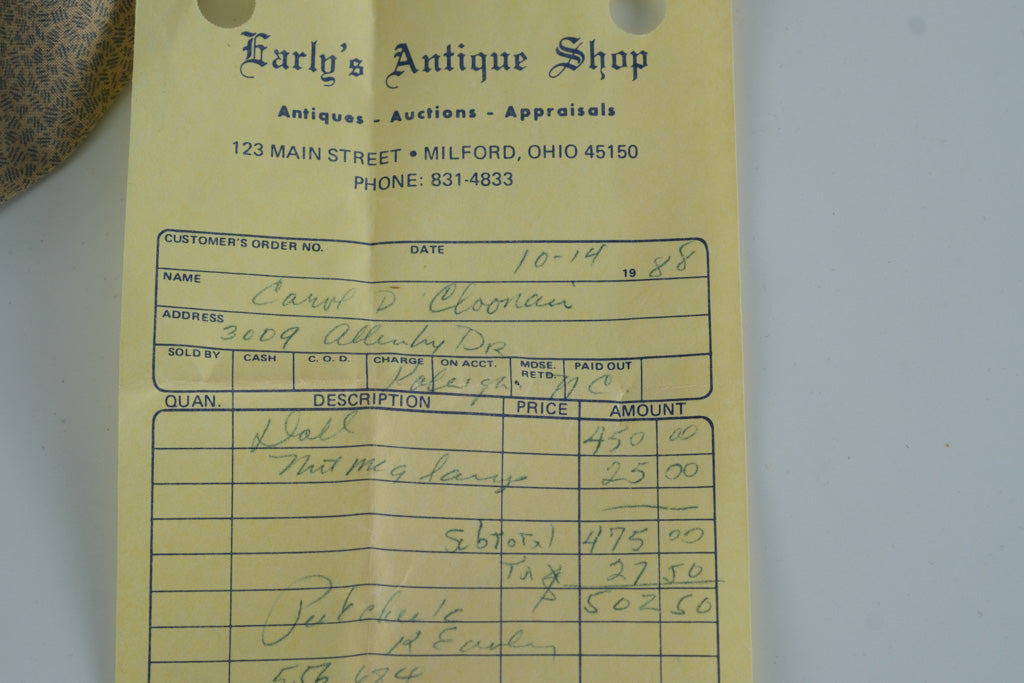 Early's Antique Shop
Antiques - Auctions - Appraisals
123 MAIN STREET • MILFORD, OHIO 45150
PHONE: 831-4833
CUSTOMER'S ORDER NO. DATE 10-14 19 88
NAME Carol D Cloonan
ADDRESS 3009 Allenby DR
SOLD BY CASH C. O. D. CHARGE ON ACCT. MDSE. RETD. PAID OUT
Raleigh NC
QUAN. DESCRIPTION PRICE AMOUNT
Doll 450 00
Nutmeg 25 00
SubTotal 475 00
Tax 27 50
502 50
Pd check
K Early
556 684